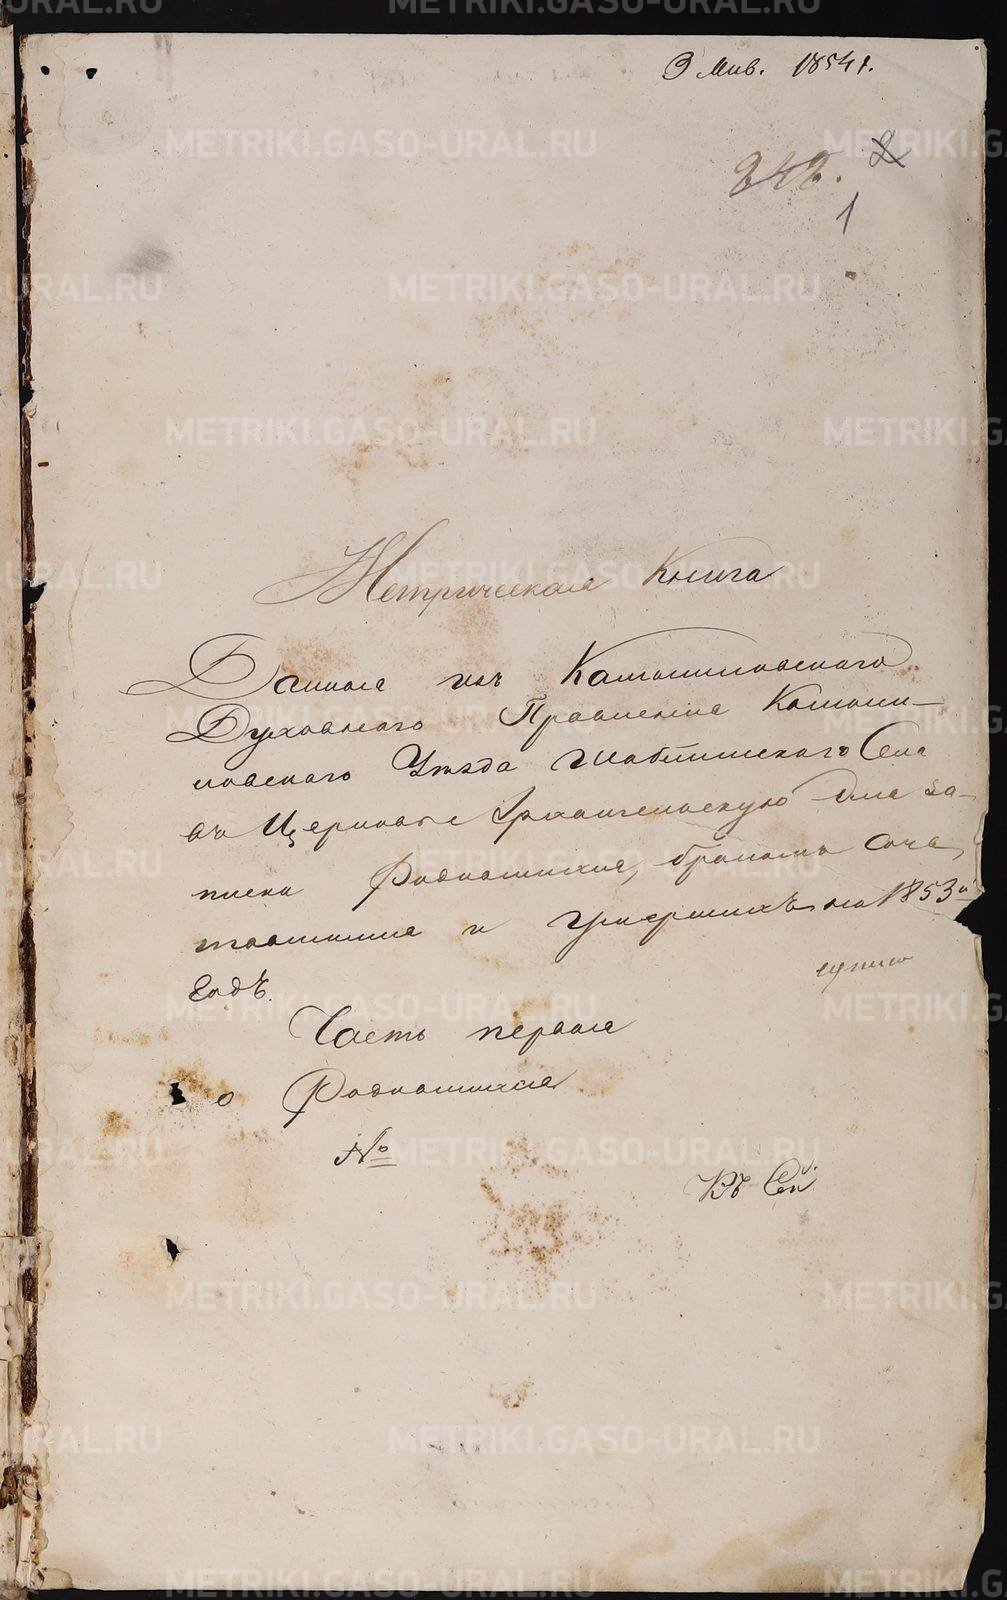 9 Янв. 1854 г.
242. 2
1
Метрическая Книга
Данная изъ Камышловскаго
Духовнаго Правления Камыш-
ловскаго Уезда Шаблишскаго Села
въ Церковь Архангельскую для за-
писки Родившихся, бракомъ соче-
тавшихся и умершихъ на 1853й
годъ.
Часть первая
о Родившихся
№
METRIKI.GASO-URAL.RU